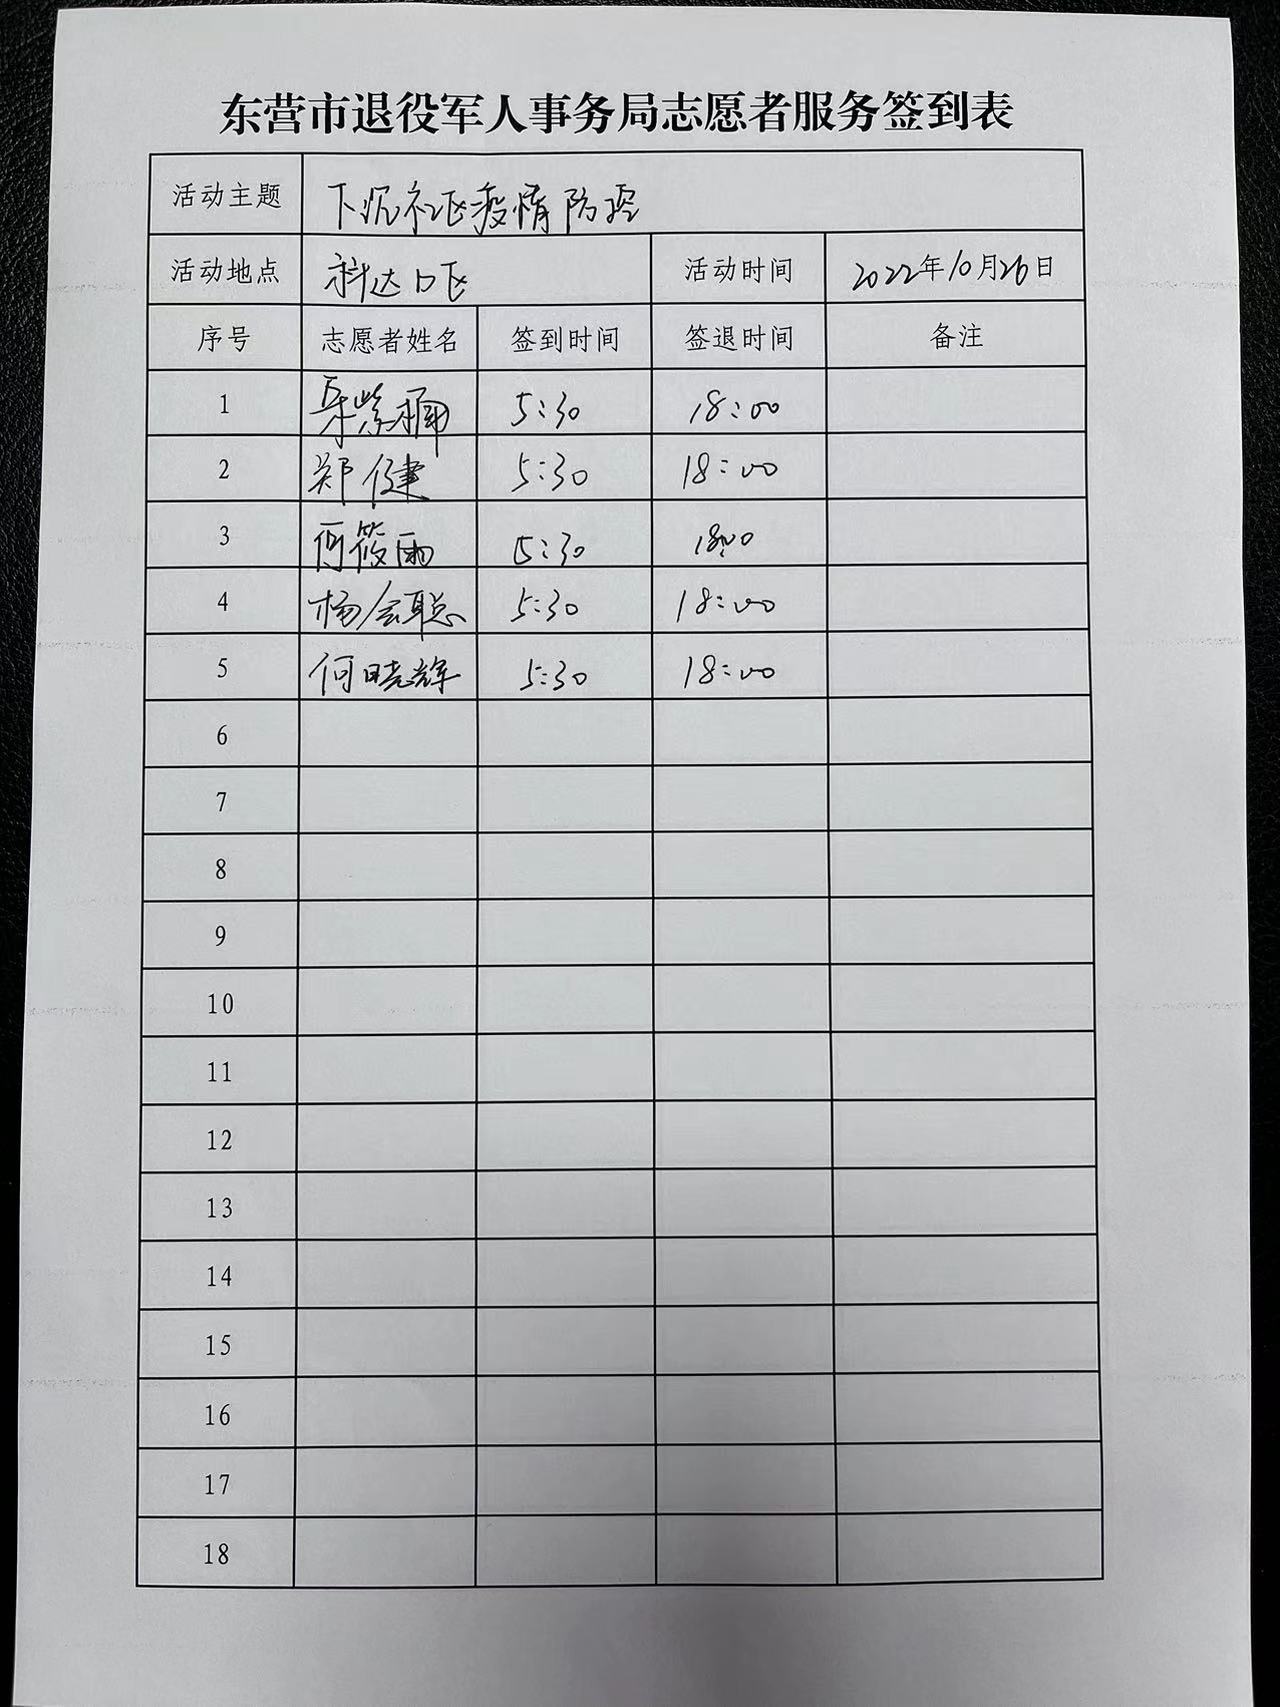 东营市退役军人事务局志愿者服务签到表
活动主题 下沉社区疫情防控
活动地点 科达小区 活动时间 2022年10月26日
序号 志愿者姓名 签到时间 签退时间 备注
1 5:30 18:00
2 郑健 5:30 18:00
3 何筱雨 5:30 18:00
4 杨会聪 5:30 18:00
5 何晓辉 5:30 18:00
6
7
8
9
10
11
12
13
14
15
16
17
18